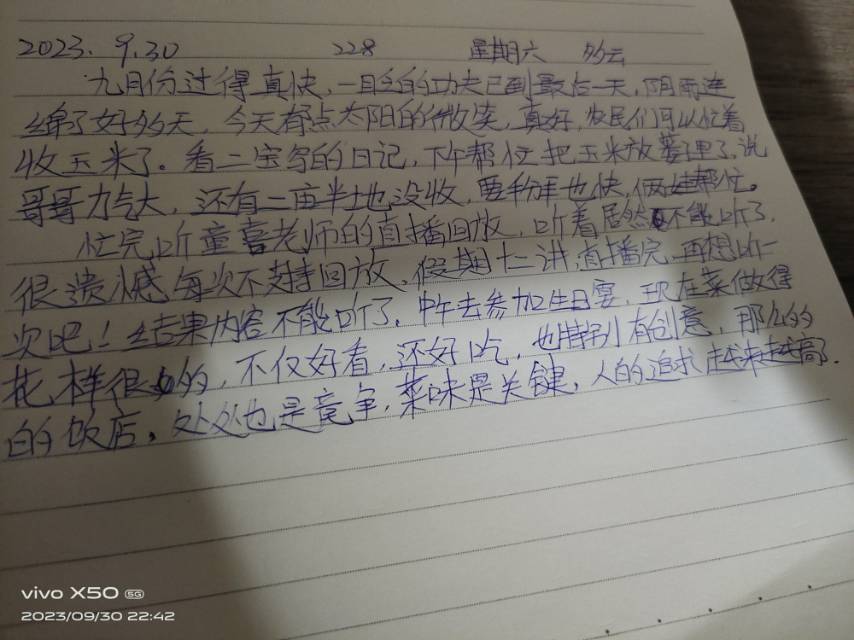 2023. 9.30 228 星期六 多云
九月份过得真快,一眨的功夫已到最后一天,阴雨连
绵了好多天,今天有点太阳的微笑,真好,农民们可以忙着
收玉米了。看二宝写的日记,下午帮忙把玉米放篓里了,说
哥哥力气大,还有二亩半地没收,要粉碎也快,俩娃帮忙。
忙完听童喜老师的直播回放,听着居然不能听了,
很遗憾每次不支持回放,假期十二讲,直播完,再想听一
次吧!结果内容不能听了,中午去参加生日宴,现在菜做得
花样很多的,不仅好看,还好吃,也特别有创意,那么的
的饭店,处处也是竞争,菜味是关键,人的追求越来越高.
vivo X50 5G
2023/09/30 22:42